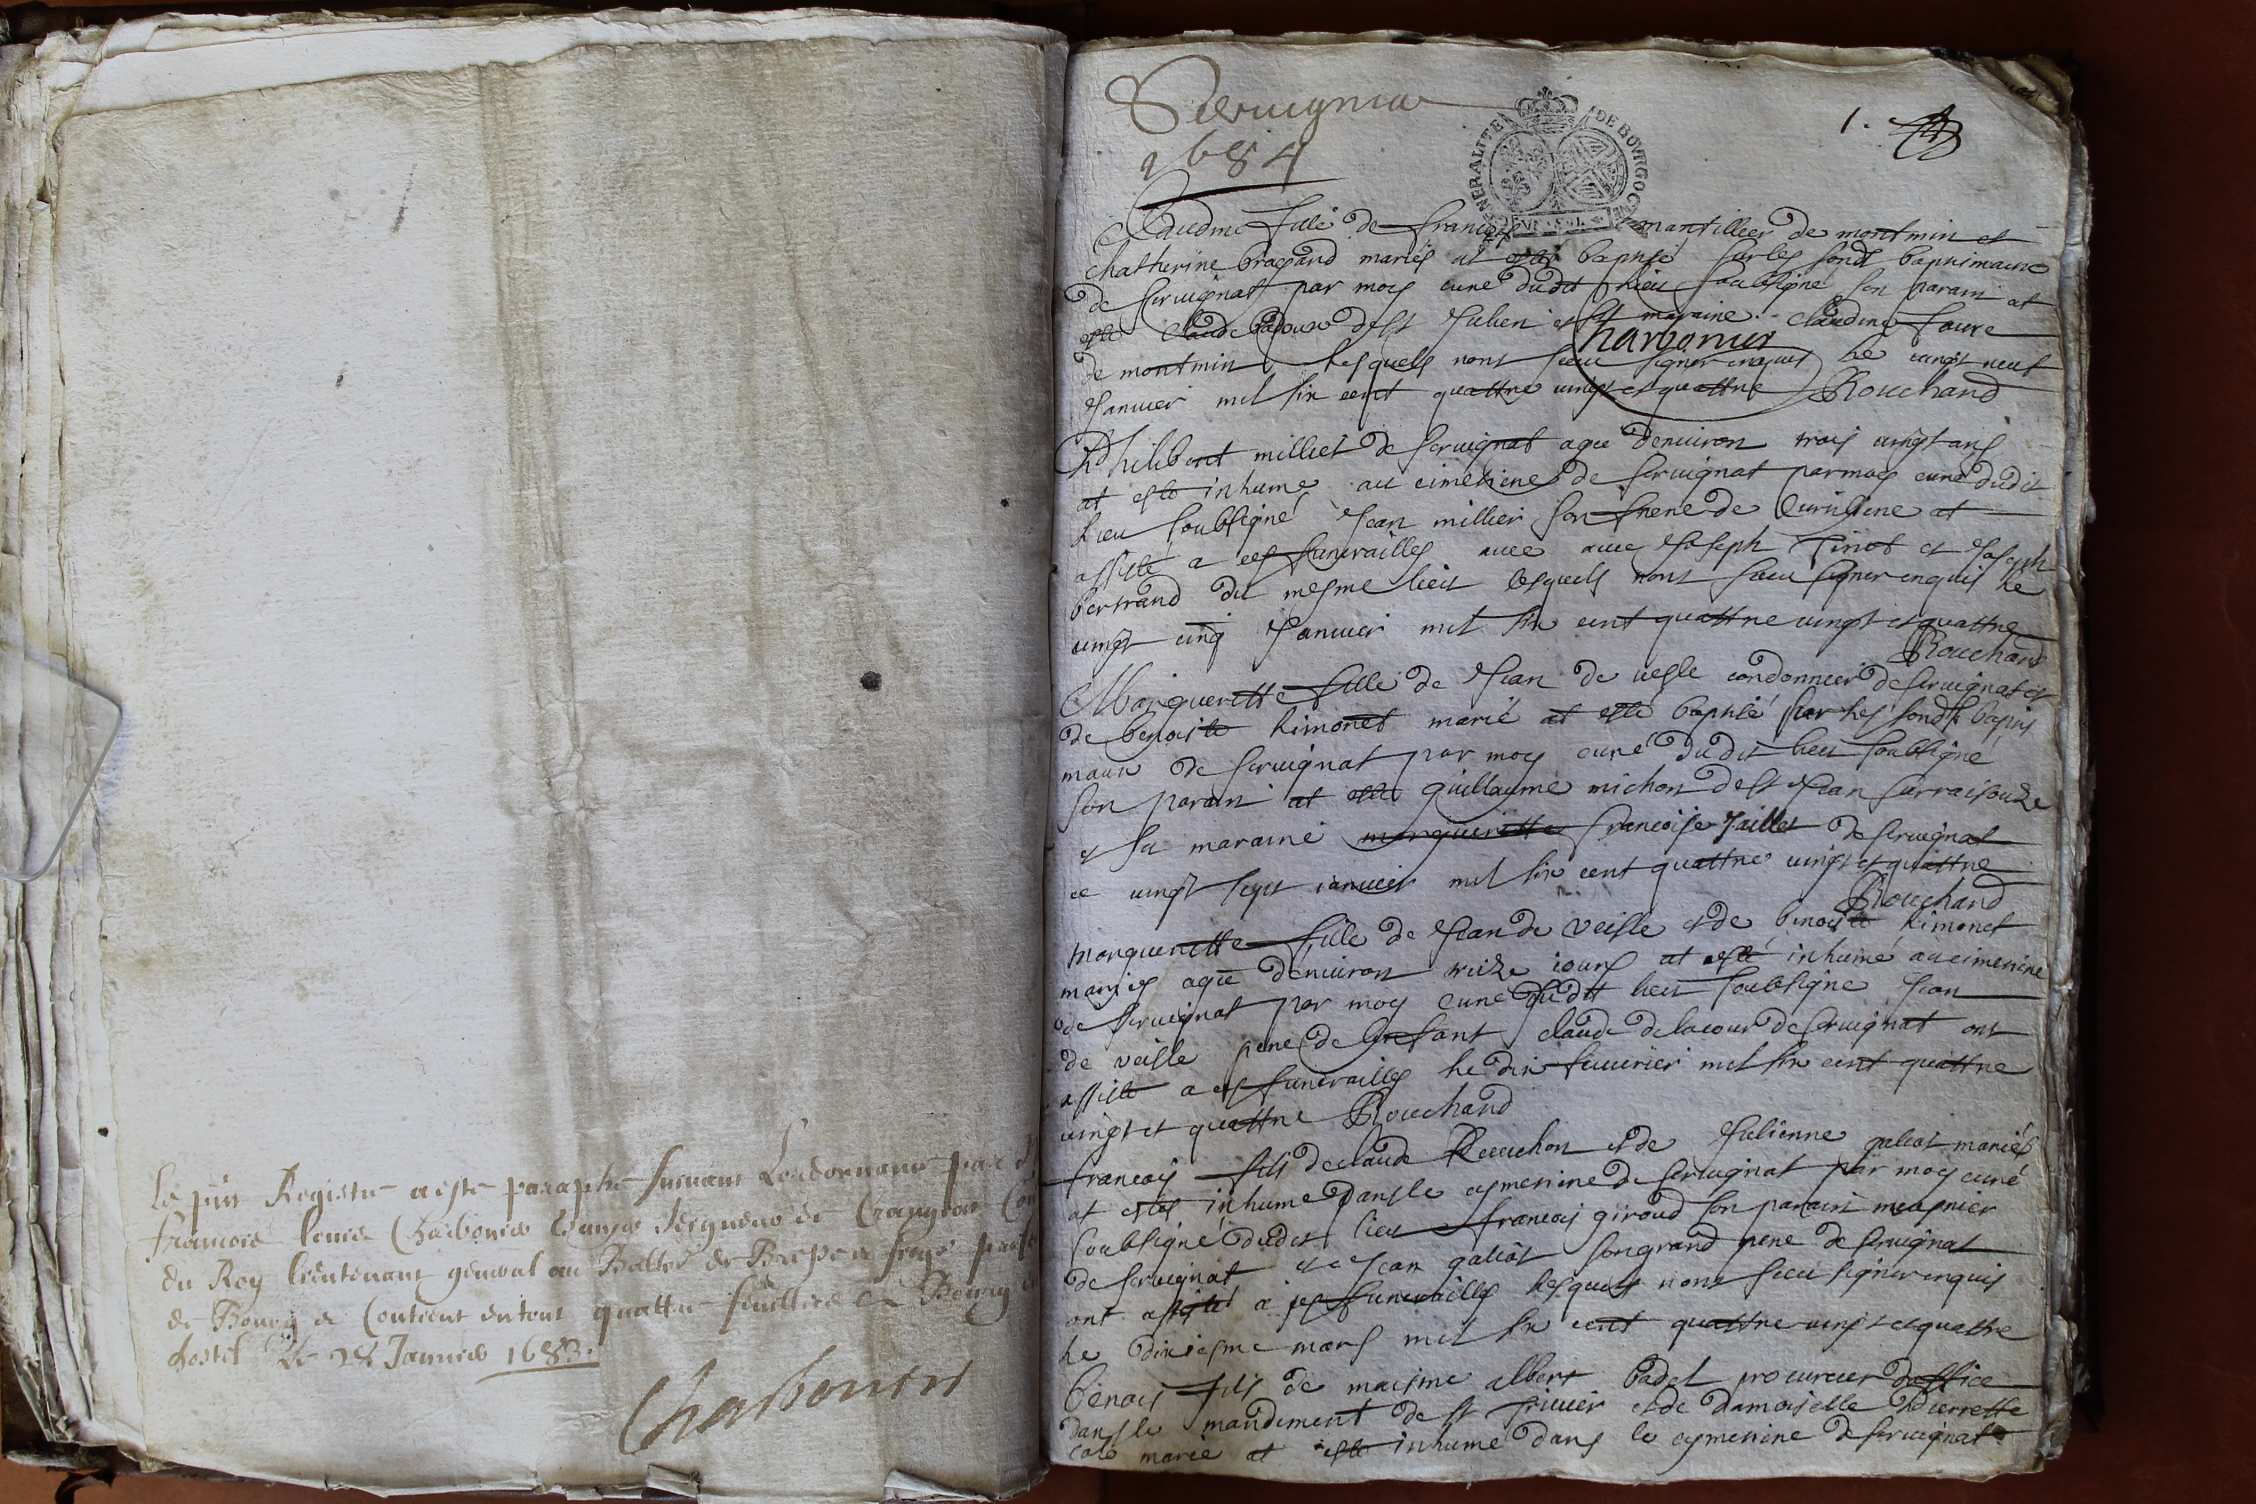 Le pñt Registre a esté paraphé suivant Lordonnance par
francois louis Charbonier seigneur de Crangeac
du Roy lieutenant general au Balliage de Bresse
de Bourg & Contient en tout quattre feuillets A Bourg
hostel le 28 Janvier 1683.
Charbonier
Servignia
1684
1.
GENERALITE DE BOVRGOGNE
Claudine fille de francois mantillier de montmin et
Chatherine bragand mariés at esté baptisé sur les fonds baptimaux
de servignat par moy curé dudit lieu soubsigné son parain at
esté Claude badoux de st Julien et sa maraine Claudine faure
Charbonier
de montmin lesquels nont sceu signer enquis le vingt neuf
Januier mil six cent quattre vingt et quattre Rouchand
Philibert milliet de seruignat agee denuiron trois vingt ans
at esté inhumé au cimetiere de seruignat par moy curé dudit
lieu soubsigné Jean millier son frere de Curtisiere at
assisté a ces funerailles auec auec Joseph Tinet et Joseph
bertrand du mesme lieu lesquels nont sceu signer enquis le
vingt cinq Januier mil six cent quattre vingt et quattre
Rouchand
Marguerette fille de Jean de uesle cordonnier de seruignat et
de benoiste Rimonet marié at esté baptisé sur les fonds baptis
maux de seruignat par moy curé dudit lieu soubsigné
son parain at esté guillayme michon de st Jean surraisouze
et sa maraine marguerette francoise Jaillet de seruignat
ce vingt sept ianuier mil six cent quattre vingt et quattre
Rouchand
marguerette fille de Jean de veisle et de benoiste Rimonet
mariés agee denuiron treize iours at esté inhumé au cimetiere
de seruignat par moy curé dudit lieu soubsigne Jean
de veisle pere de lenfant claude delacour de seruignat ont
assisté a ces funerailles le dix feuurier mil six cent quattre
vingt et quattre Rouchand
francois fils de claude Reuuchon et de Julienne galiot mariés
at esté inhumé dans le cymetiere de seruignat par moy curé
soubsigné dudit lieu francois giroud son parain meusnier
de seruignat et Jean galiot son grand pere de seruignat
ont assisté a ses funerailles lesquels nont sceu signer enquis
le dixiesme mars mil six cent quattre vingt et quattre
benois fils de maistre albert badel procureur doffice
dans le mandement de st triuier et de damoiselle pierrette
cale marié at esté inhumé dans le cymetiere de seruignat